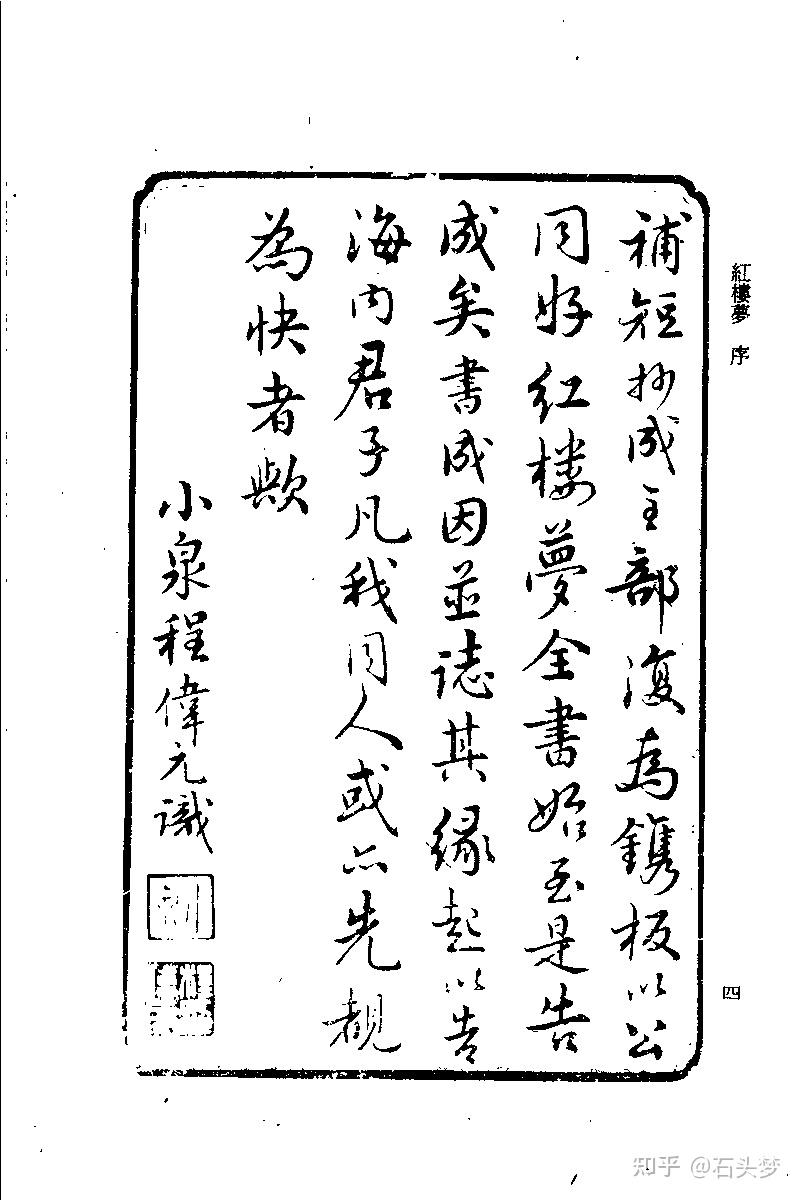 紅樓夢 序
四
補短抄成全部復為鐫板以公
同好紅樓夢全書始至是告
成矣書成因並誌其緣起以告
海內君子凡我同人或亦先覩
為快者歟
小泉程偉元識
知乎 @石头梦